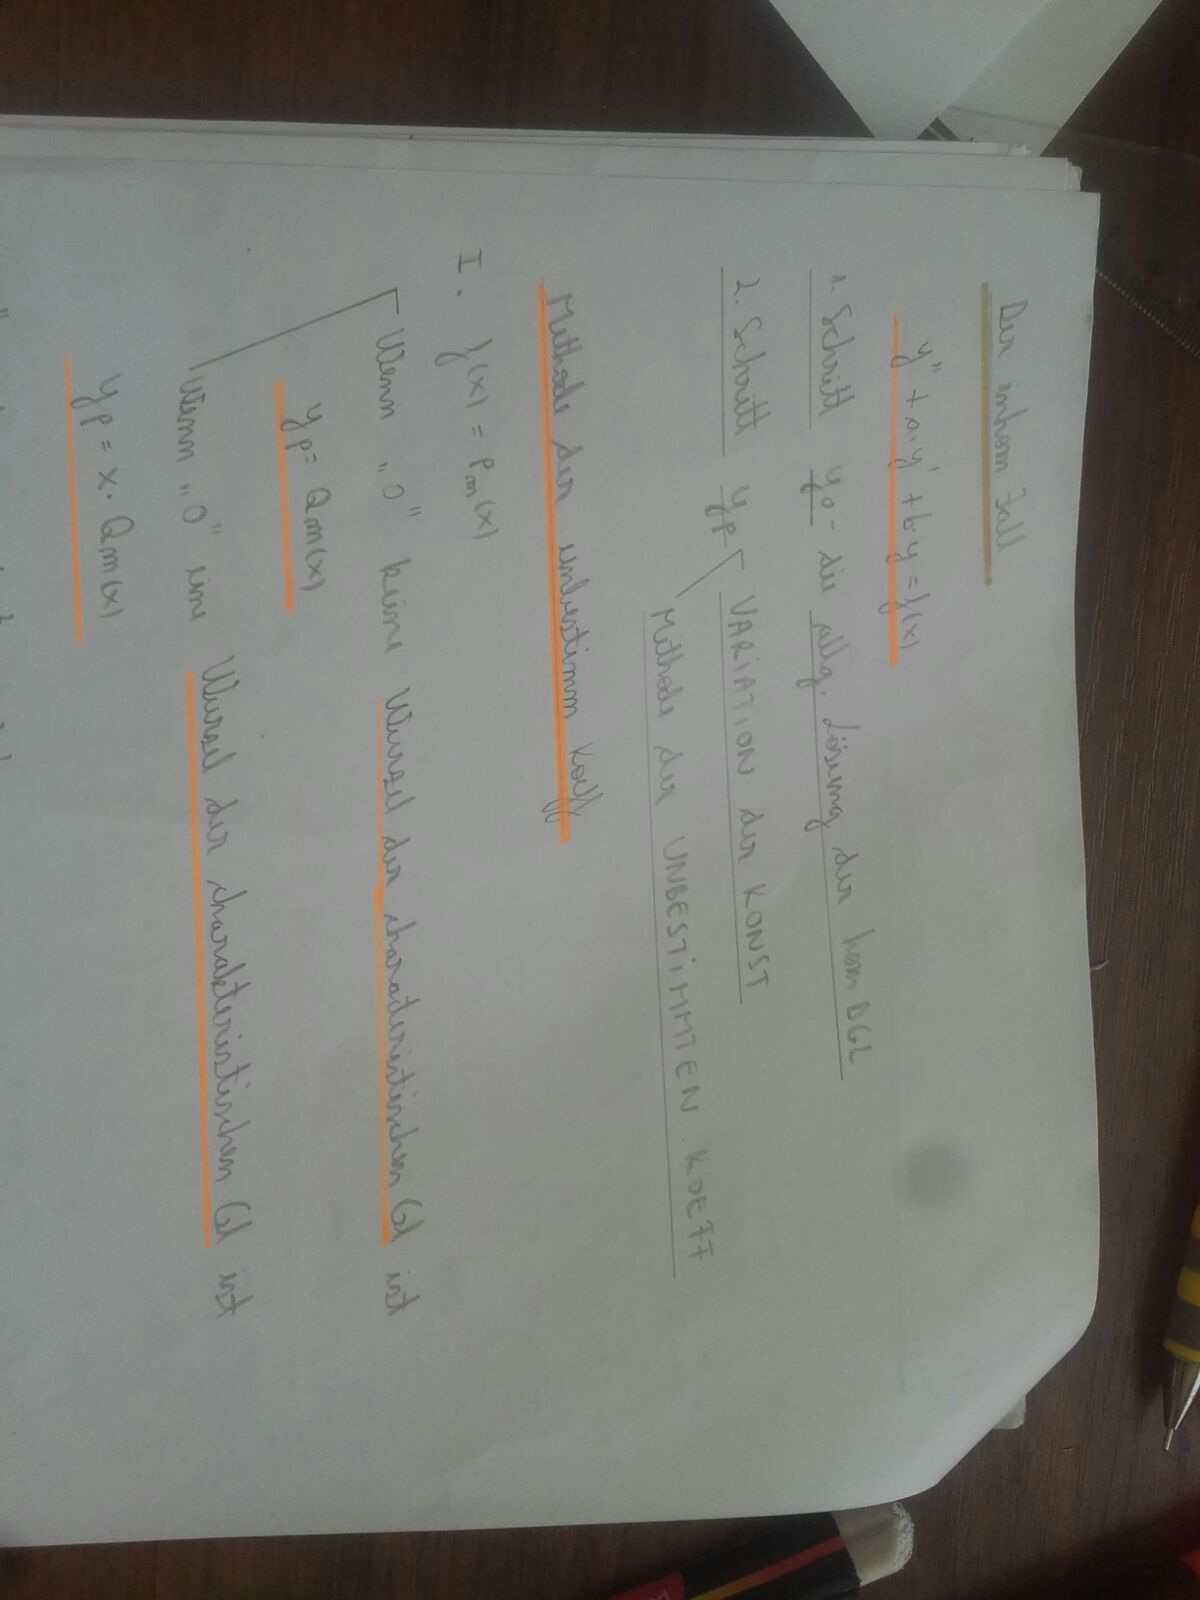 Der inhom Fall
y'' + a·y' + b·y = f(x)
1. Schritt y0 - die allg. Lösung der hom DGL
2. Schritt yp VARIATION der KONST
Methode der UNBESTIMMTEN KOEFF
Methode der unbestimm Koeff
I. f(x) = Pm(x)
Wenn „0" keine Wurzel der charakteristischen Gl ist
yp = Qm(x)
Wenn „0" eine Wurzel der charakteristischen Gl ist
yp = x · Qm(x)